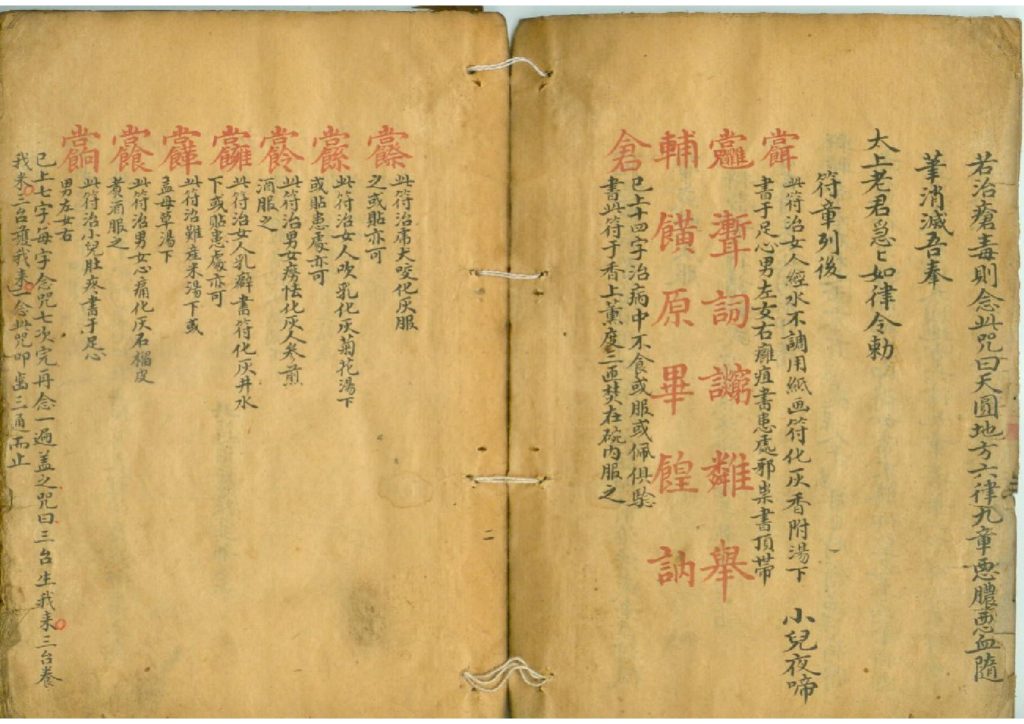 若治瘡毒則念此咒曰天圓地方六律九章惡膿惡血隨
筆消滅吾奉
太上老君急々如律令勅
符章列後
此符治女人經水不調用紙画符化灰香附湯下 小兒夜啼
書于足心男左女右癰疽書患處邪祟書頂帶
詞 難 舉
輔 饙 原 畢 餭 訥
倉
已上十四字治病中不食或服或佩俱騐
書此符于香上薰度三匝焚在碗内服之
二
此符治犬咬化灰服
之或貼亦可
此符治女人吹乳化灰菊花湯下
或貼患處亦可
此符治男女痰怯化灰人參煎
酒服之
此符治女人乳癖書符化灰井水
下或貼患處亦可
此符治難産米湯下或
孟母草湯下
此符治男女心痛化灰石榴皮
煮酒服之
此符治小兒肚疼書于足心
男左女右
已上七字每字念咒七次完再念一遍盖之咒曰三台生我来三台養
我来三台護我来一念此咒叩齒三通而止